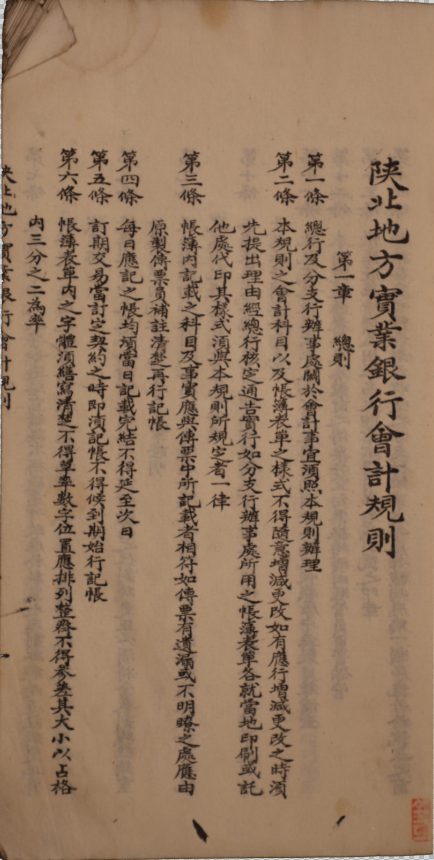 陝北地方實業銀行會計規則
第一章　總則
第一條　總行及分支行辦事處關於會計事宜須照本規則辦理
第二條　本規則之會計科目以及帳簿表單之樣式不得隨意增減更改如有應行增減更改之時須
先提出理由經總行核定通告實行如分支行辦事處所用之帳簿表單各就當地印刷或託
他處代印其樣式須與本規則所規定者一律
第三條　帳簿內記載之科目及事實應與傳票中所記載者相符如傳票有遺漏或不明瞭之處應由
原製傳票員補註清楚再行記帳
第四條　每日應記之帳均須當日記載完結不得延至次日
第五條　訂期交易當訂定契約之時即須記帳不得候到期始行記帳
第六條　帳簿表單內之字體須繕寫清楚不得草率數字位置應排列整齊不得參差其大小以占格
內三分之二為率
陝北地方實業銀行會計規則